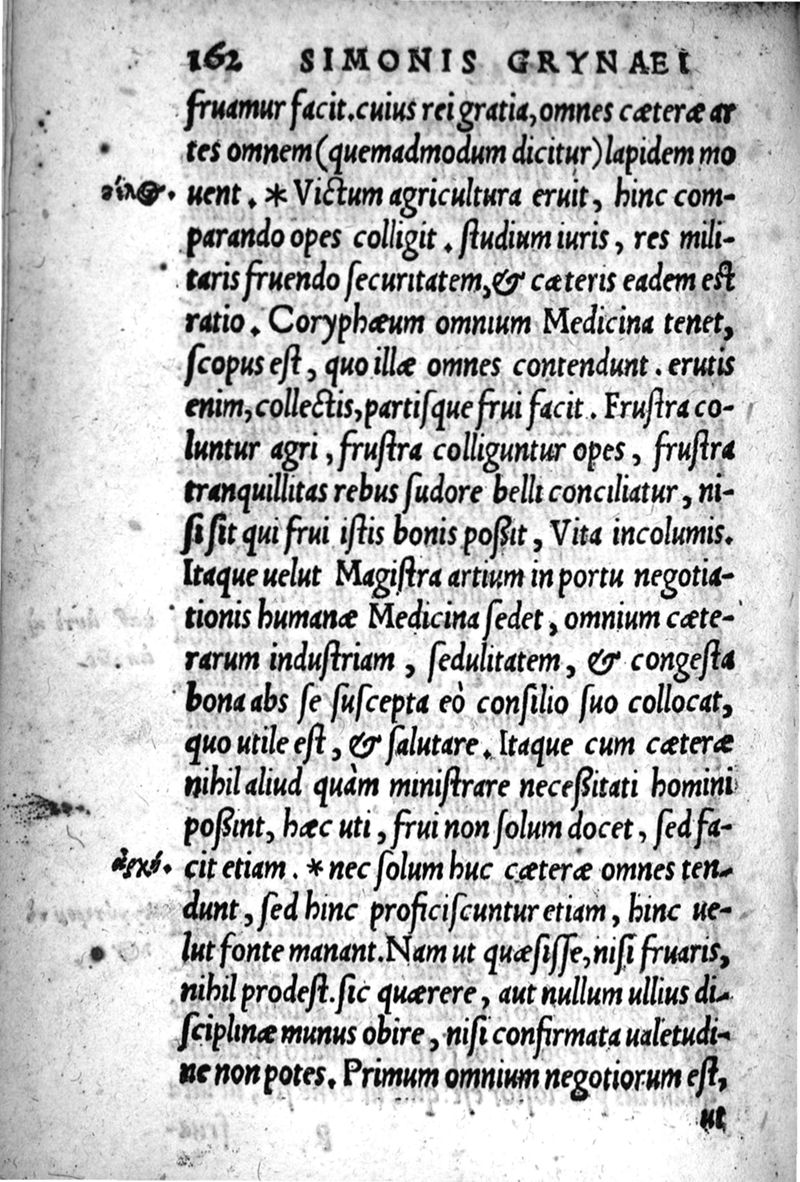 162 SIMONIS GRYNAEI
fruamur facit.cuius rei gratia, omnes cæteræ ar
tes omnem (quemadmodum dicitur) lapidem mo
uent. * Victum agricultura eruit, hinc com-
parando opes colligit. ſtudium iuris, res mili-
taris fruendo ſecuritatem, & cæteris eadem eſt
ratio. Coryphæum omnium Medicina tenet,
ſcopus eſt, quo illæ omnes contendunt. erutis
enim, collectis, partiſque frui facit. Fruſtra co-
luntur agri, fruſtra colliguntur opes, fruſtra
tranquillitas rebus ſudore belli conciliatur, ni-
ſi ſit qui frui iſtis bonis poßit, Vita incolumis.
Itaque uelut Magiſtra artium in portu negotia-
tionis humanæ Medicina ſedet, omnium cæte-
rarum induſtriam, ſedulitatem, & congeſta
bona abs ſe ſuſcepta eò conſilio ſuo collocat,
quo utile eſt, & ſalutare. Itaque cum cæteræ
nihil aliud quàm miniſtrare neceßitati homini
poßint, hæc uti, frui non ſolum docet, ſed fa-
ἀρχή. cit etiam. * nec ſolum huc cæteræ omnes ten-
dunt, ſed hinc proficiſcuntur etiam, hinc ue-
lut fonte manant. Nam ut quæſiſſe, niſi fruaris,
nihil prodeſt. ſic quærere, aut nullum ullius di-
ſciplinæ munus obire, niſi confirmata ualetudi-
ne non potes. Primum omnium negotiorum eſt,
ut